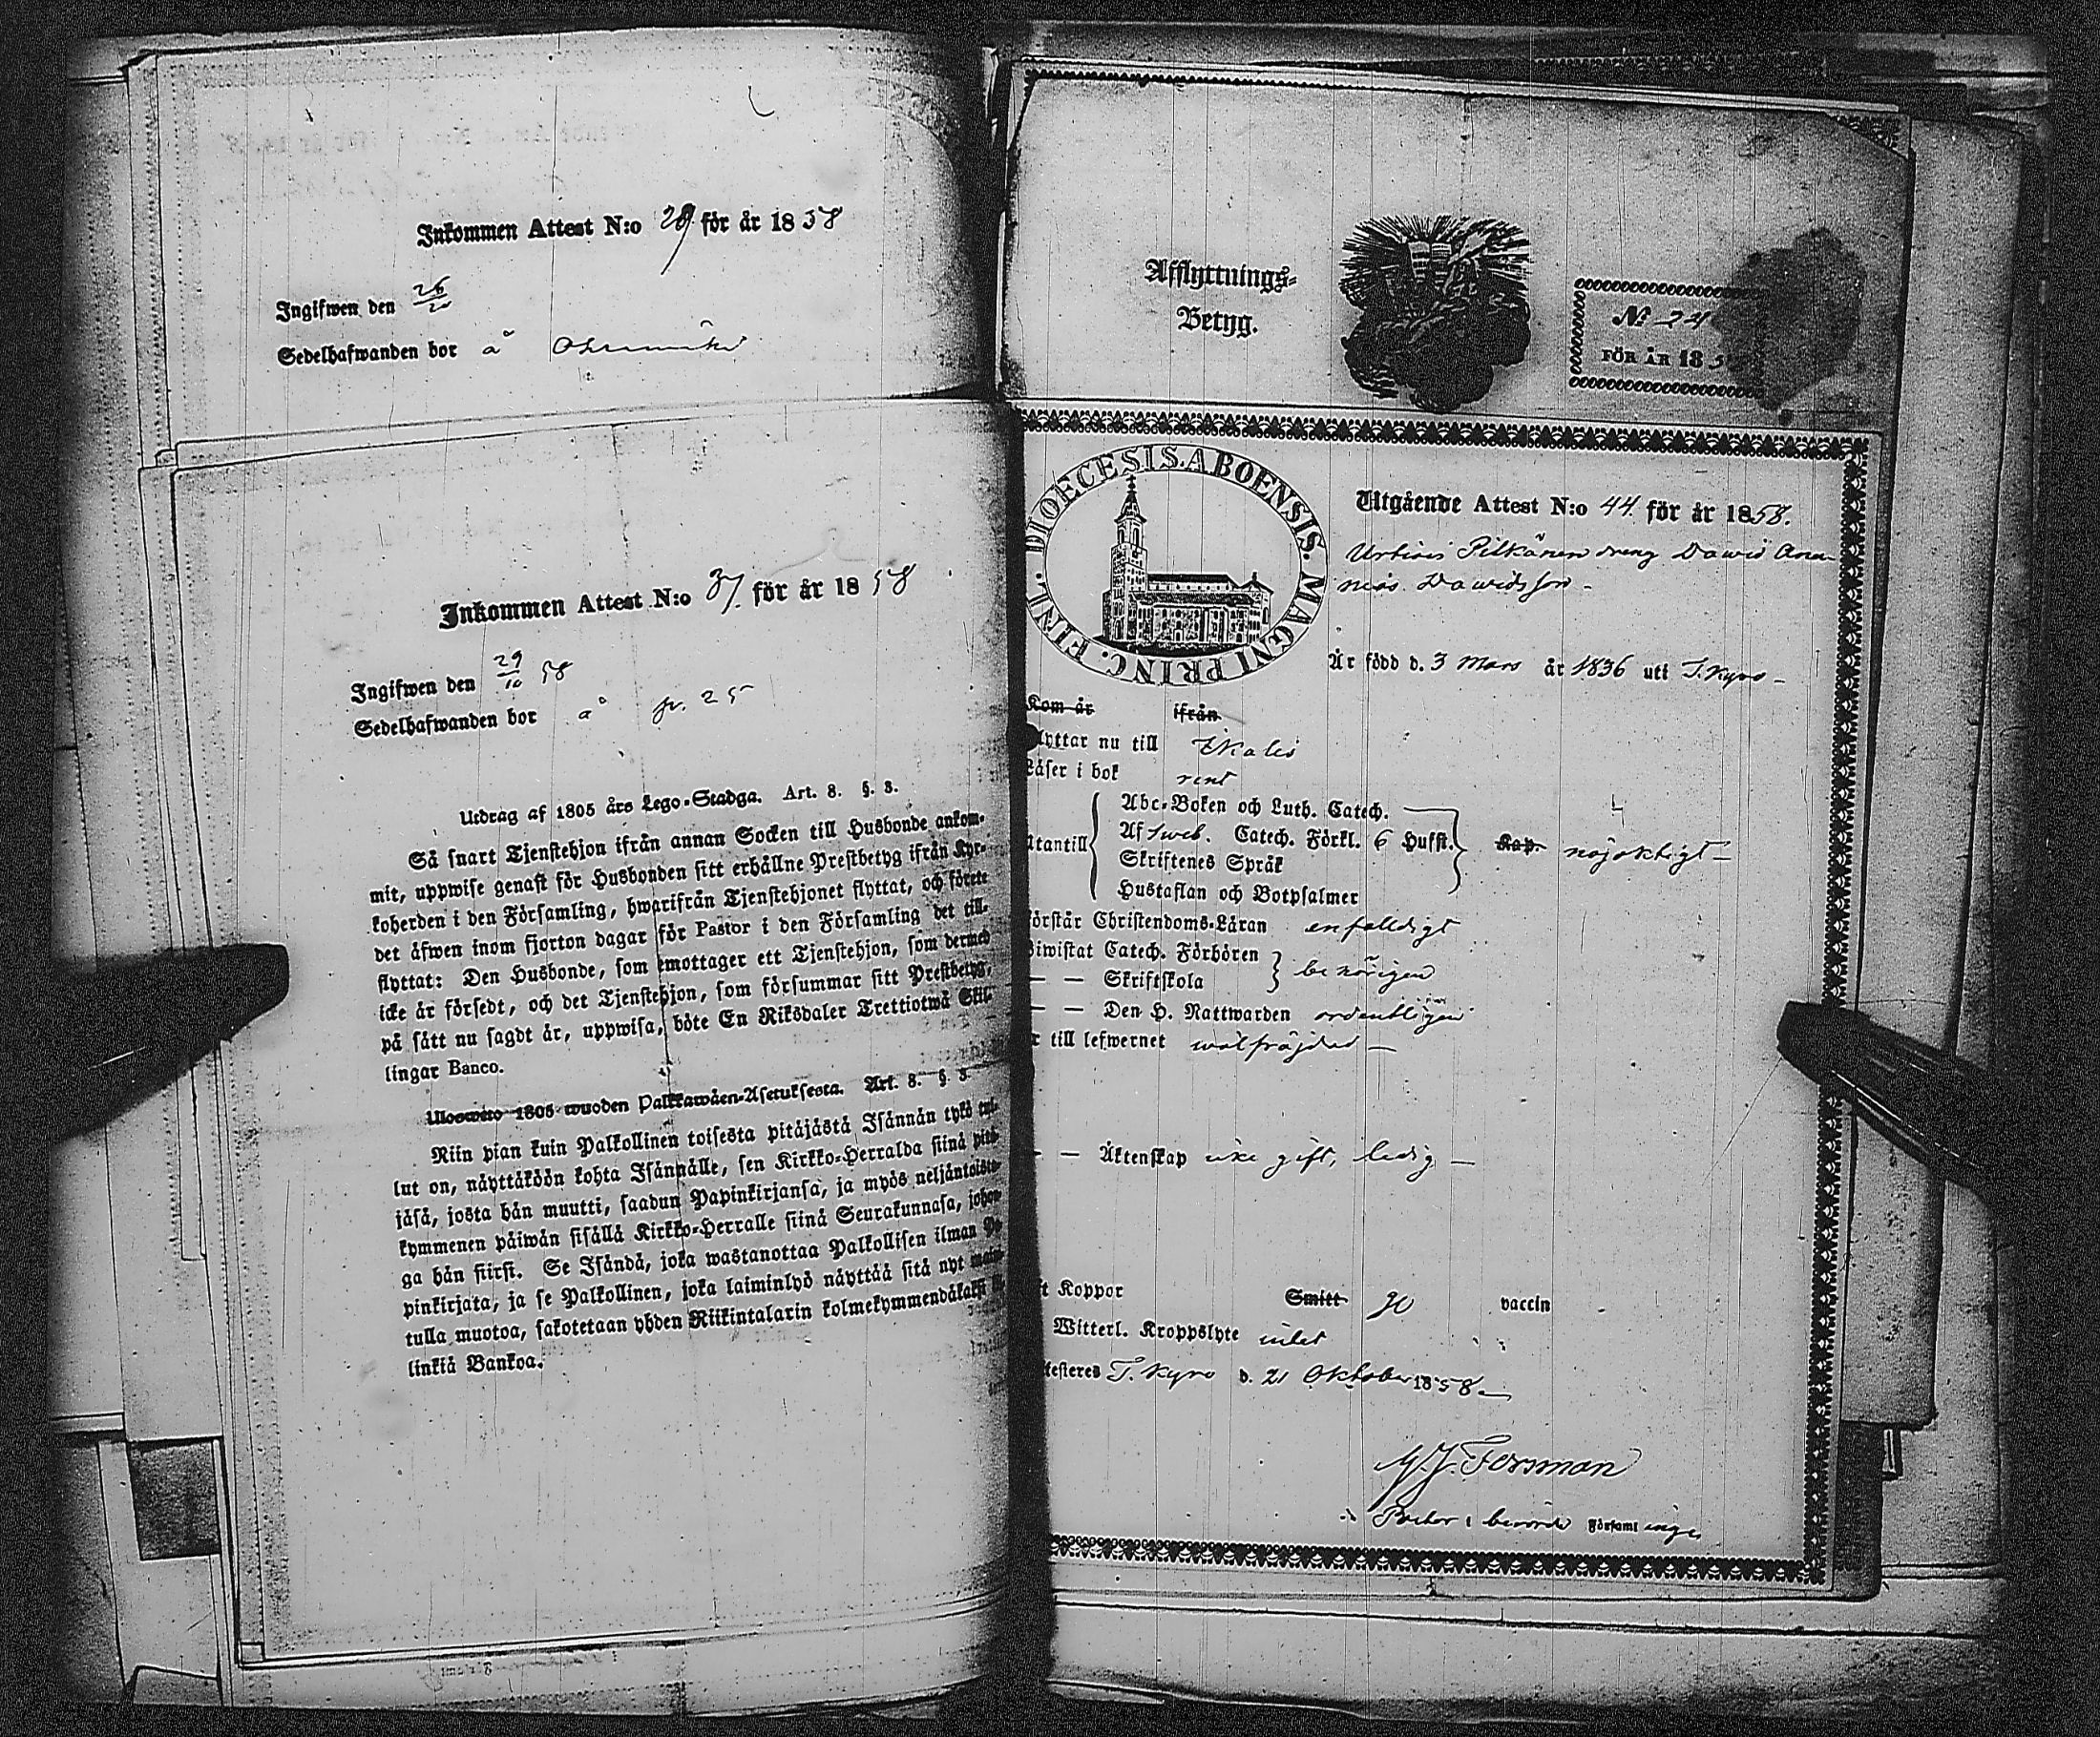 Inkommen Attest N:o 28 för år 1858
Ingifwen den 26
Sedelhafwanden bor å
Inkommen Attest N:o 37. för år 1858
Ingifwen den 29/10 58
Sedelhafwanden bor å fr. 25
Utdrag af 1805 års Lego-Stadga. Art. 8. §. 3.
Så snart Tjenstehjon ifrån annan Socken till Husbonde ankom-
mit, uppwise genast för Husbonden sitt erhållne Prestbetyg ifrån Kyr-
koherden i den Församling, hwarifrån Tjenstehjonet flyttat, och förete
det äfwen inom fjorton dagar för Pastor i den Församling det till-
flyttat: Den Husbonde, som emottager ett Tjenstehjon, som dermed
icke är försedt, och det Tjenstehjon, som försummar sitt Prestbetyg,
på sätt nu sagdt är, uppwisa, böte En Riksdaler Trettiotwå Skil-
lingar Banco.
Uloswéto 1805 wuoden Palkkawäen-Asetuksesta. Art. 8. §. 3.
Niin pian kuin Palkollinen toisesta pitäjästä Isännän tykö tul-
lut on, näyttäköön kohta Isännälle, sen Kirkko-Herralda siinä pitä-
jäsä, josta hän muutti, saadun Papinkirjansa, ja myös neljäntoista-
kymmenen päiwän sisällä Kirkko-Herralle siinä Seurakunnasa, johon-
ga hän siirsi. Se Isändä, joka wastanottaa Palkollisen ilman Pa-
pinkirjata, ja se Palkollinen, joka laiminlyö näyttää sitä nyt main-
tulla muotoa, sakotetaan yhden Riikintalarin kolmekymmendäkaksi
linkiä Bankoa.
Afflyttnings-
Betyg.
N:o 24
FÖR ÅR 185
DIOECESIS. ABOENSIS. MAGNI PRINC. FINL.
Utgående Attest N:o 44. för år 1858.
Pitkänen dreng Dawid Ana-
nias Dawidsson -
Är född d. 3 Mars år 1836 uti T.kyro -
Kom år ifrån
lyttar nu till Ikalis
äser i bok rent
Abc-Boken och Luth. Catech.
tantill Af Sweb. Catech. Förkl. 6 Hufst. Kap. nöjaktigt -
Skriftenes Språk
Hustaflan och Botpsalmer
örstår Christendoms-Läran enfalldigt
iwistat Catech. Förhören
— — Skriftskola behörigen
— — Den H. Nattwarden ordentligen
r till lefwernet wälfräjdad —
— — Äktenskap icke gift, ledig —
t Koppor Smitt ge vaccin
Witterl. Kroppslyte intet
testeres T.kyro d. 21 Oktober 1858 -
M.J. Forsman
Pastor i berörde Församlinge,